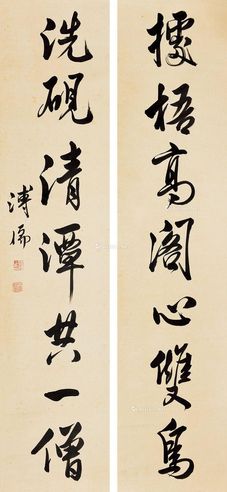 據梧高閣心雙鳥
洗硯清潭共一僧
溥儒